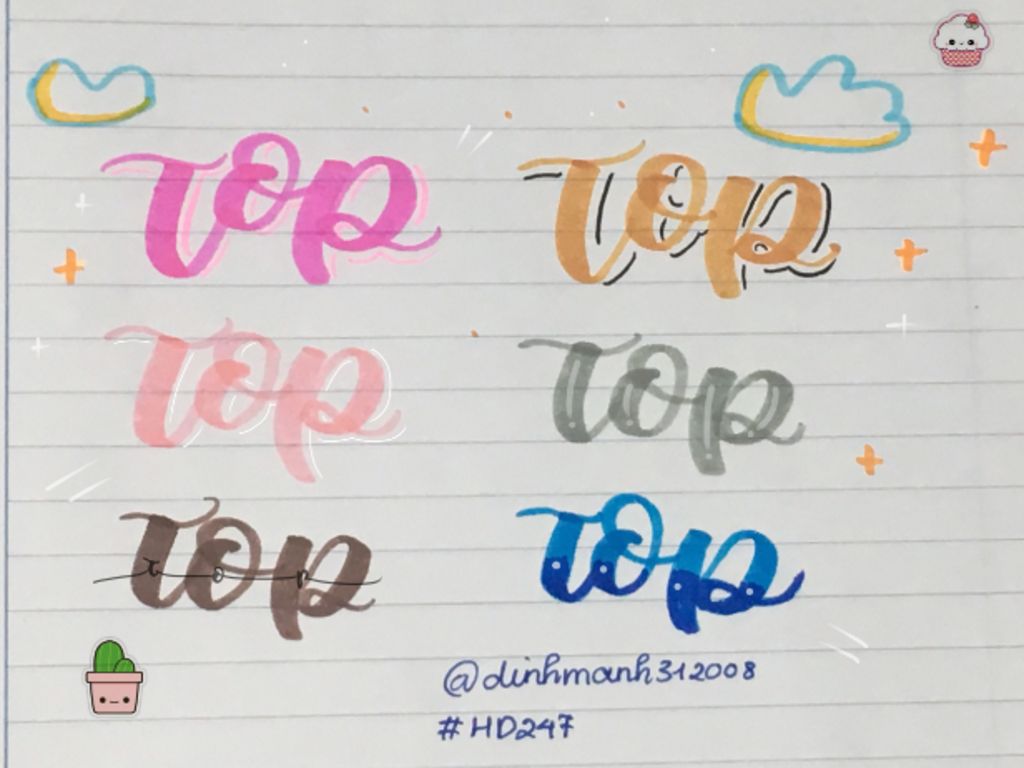 top top
top top
top top
top
@dinhmanh312008
#HD247